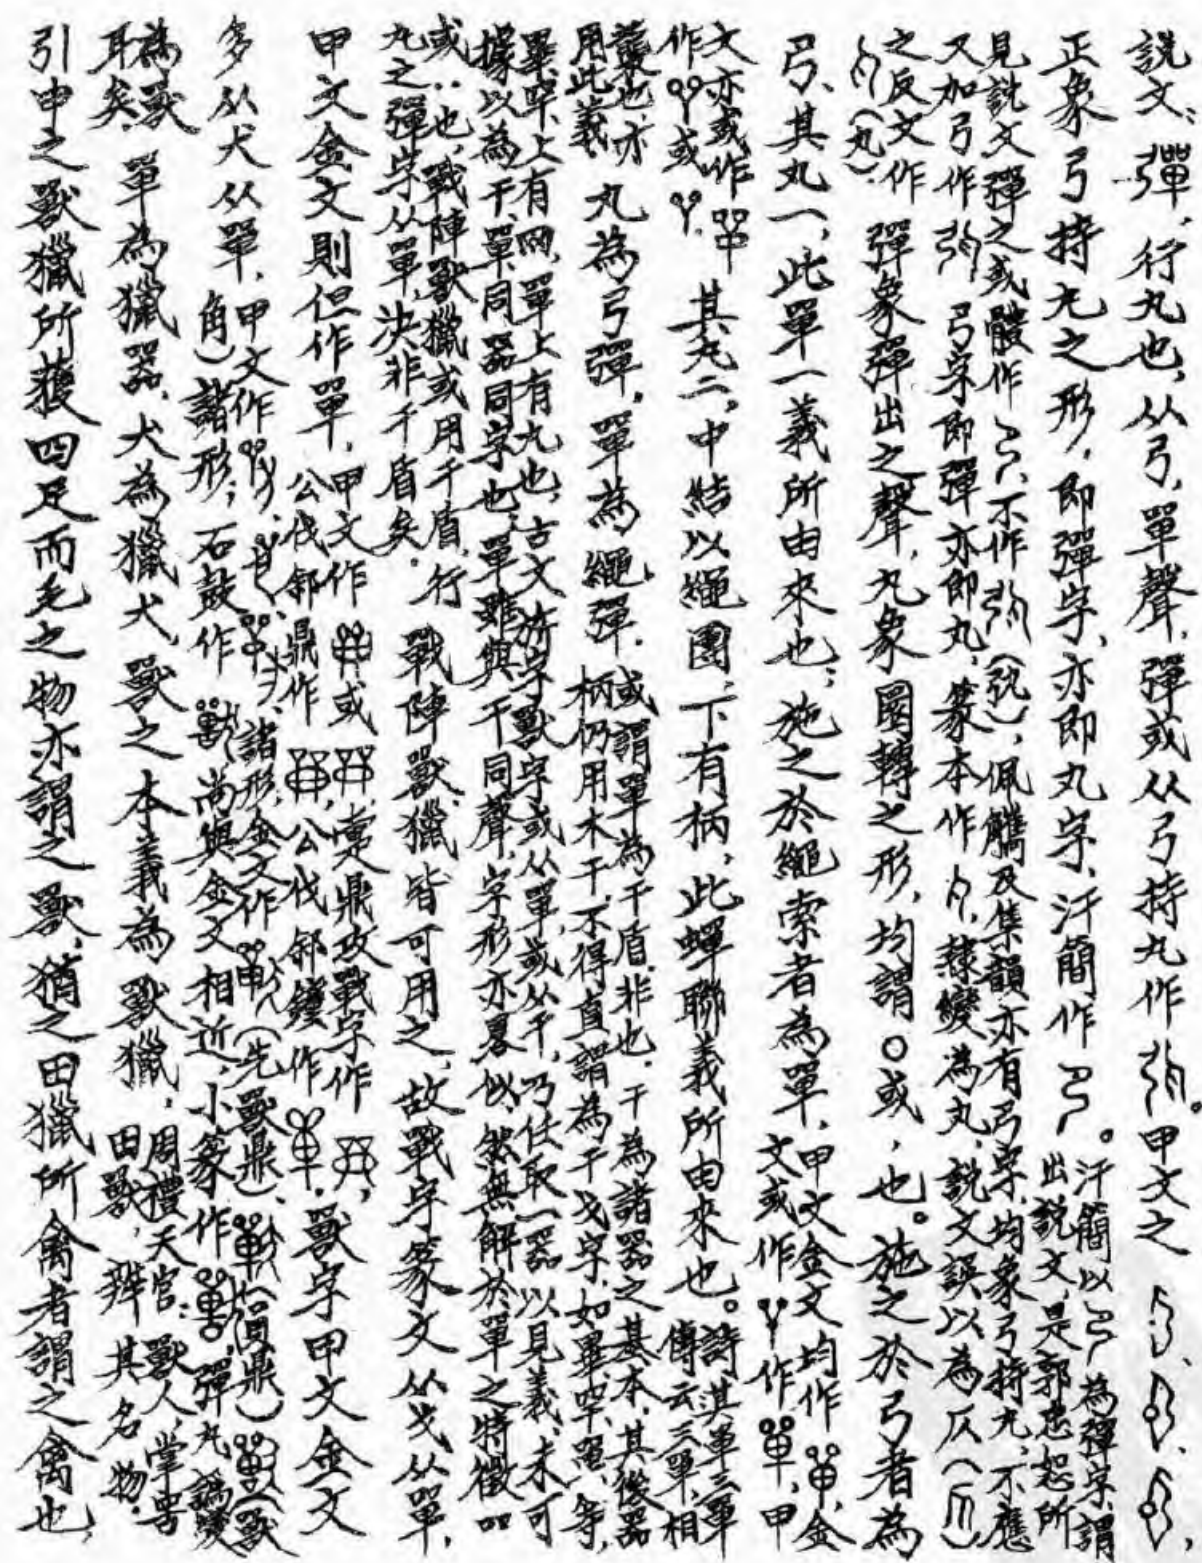 說文：彈，行丸也，从弓，單聲，彈或从弓持丸作。甲文之
正象弓持丸之形，即彈字，亦即丸字，汗簡作。
汗簡以為彈字，謂
出說文，是郭忠恕所
見說文彈之或體作，不作，佩觿及集韻亦有弓字，均象弓持丸，不應
又加弓作 弓字即彈亦即丸，篆本作，隸變為丸，說文誤以為仄
之反文作
（丸）.
彈象彈出之聲，丸象圜轉之形，均謂〇或，也。施之於弓者為
弓，其丸一，此單一義所由來也；施之於繩索者為單，
甲文金文均作，金
文或作 作，甲
文亦或作
作 或
其丸二，中結以繩團，下有柄，此蟬聯義所由來也。
詩其軍三單
傳云三單，相
襲也，亦
用此義.
丸為弓彈，單為繩彈.
或謂單為干盾，非也，干為諸器之基本，其後器
柄仍用木干，不得直謂為干戈字，如畢、等，
畢、上有网，單上有丸也，古文旂字獸字或从單，或从干，乃任取一器以見義，未可
據以為干、單同器同字也，單雖與干同聲，字形亦畧似，然無解於單之特徵吅
或‥也，戰陣獸獵或用干盾，行
丸之彈字从單，決非干盾矣。
戰陣獸獵皆可用之，故戰字篆文从戈从單，
甲文金文則但作單，
甲文作 或，鼎攻戰字作
公伐郐鼎作，公伐郐鐘作，
獸字甲文金文
多从犬从單，
甲文作、諸形，金文作（先獸鼎）、（員鼎）（獸
角）諸形；石鼓作 尚與金文相近，小篆作，彈丸譌變
為獸
耳矣.
單為獵器，犬為獵犬，獸之本義為獸獵，
周禮天官：獸人，掌罟
田獸，辨其名物.
引申之獸獵所獲四足而毛之物亦謂之獸，猶之田獵所禽者謂之禽也，